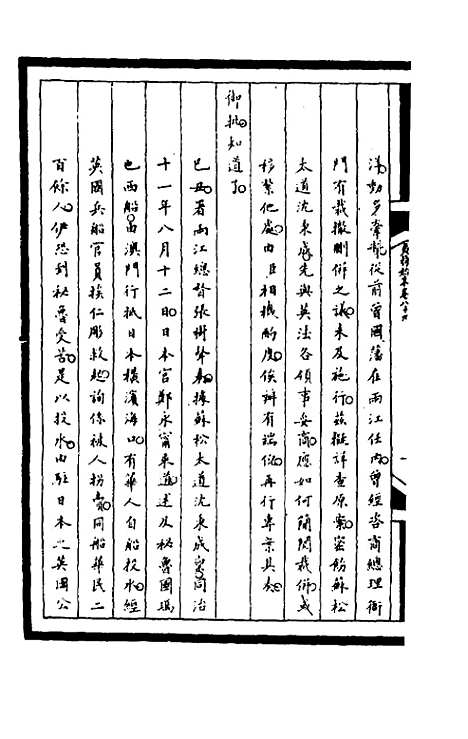 涉動多牽龍從前曾國藩在兩江任內曾經咨商總理衙
門有裁撤刪併之議未及施行茲擬詳查原案密飭蘇松
太道沈秉成先與英法各領事妥商應如何簡閱裁併或
移紮他處由臣相機酌度俟辦有端倪再行專案具奏
御批知道了
己丑署兩江總督張樹聲奏據蘇松太道沈秉成稟同治
十一年八月十二日日本官鄭永甯來道述及秘魯國瑪
也西船由澳門行抵日本橫濱海口有華人自船投水經
英國兵船官員挨仁彫救起詢係被人拐賣同船華民二
百餘人伊恐到秘魯受苦是以投水由駐日本之英國公